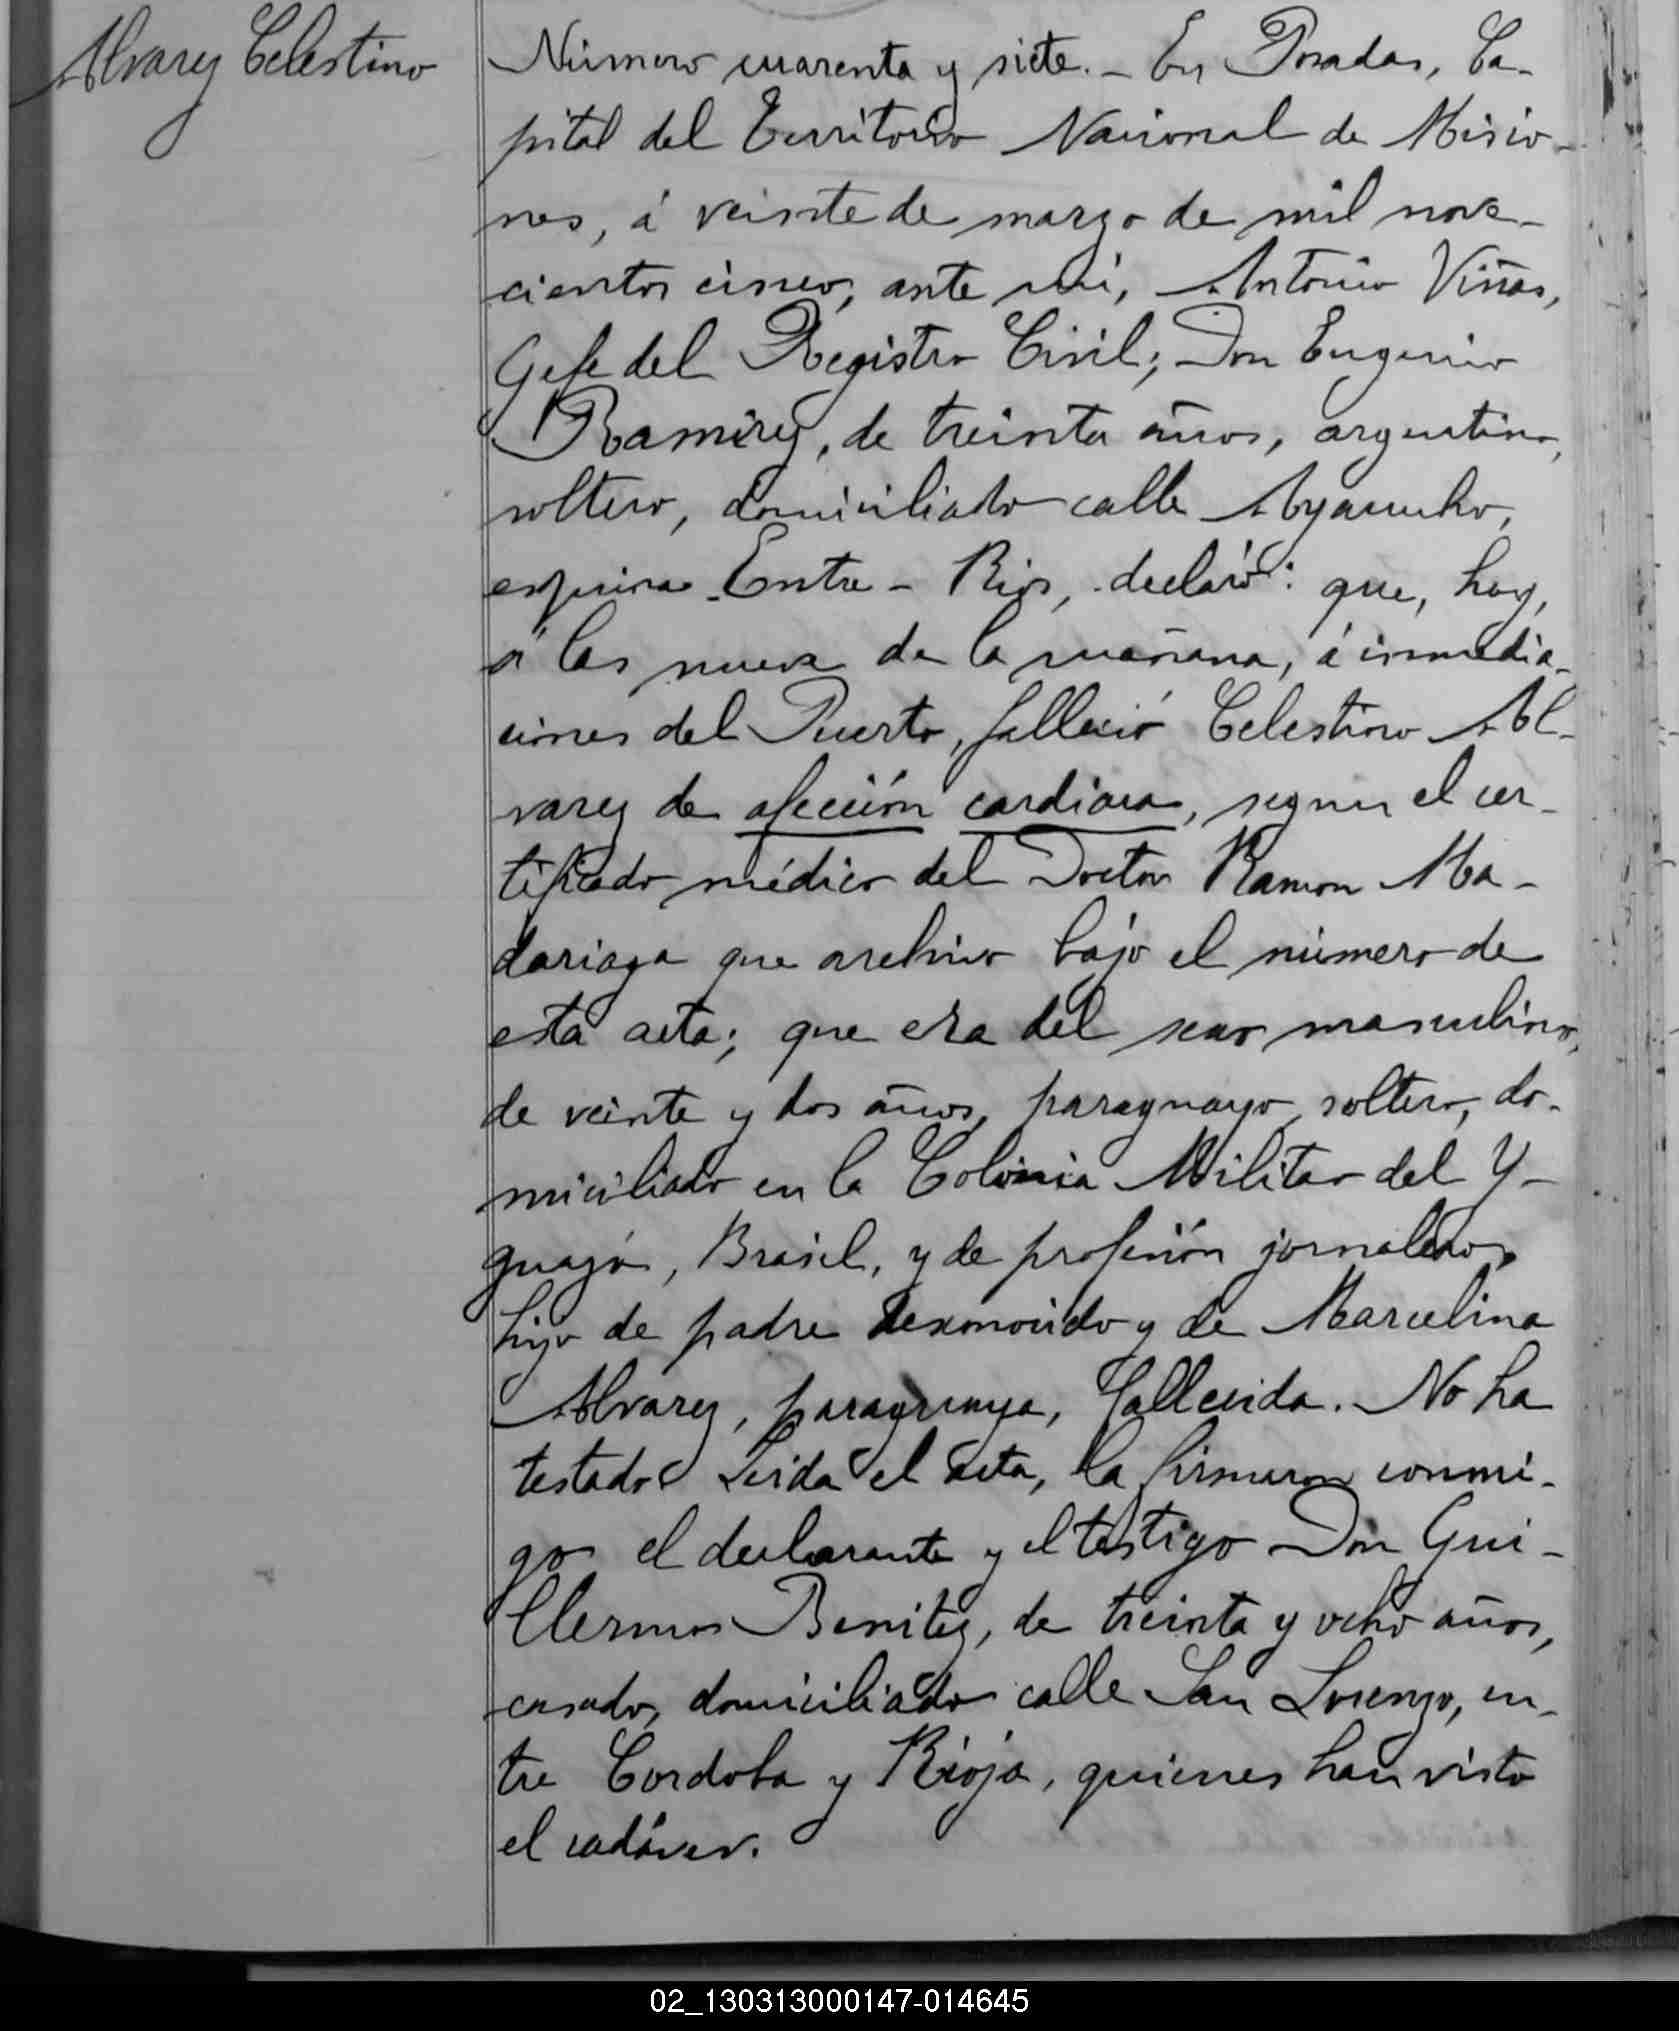 Alvarez Celestino
Número cuarenta y siete.- En Posadas, Ca-
pital del Territorio Nacional de Misio-
nes, á veinte de marzo de mil nove-
cientos cinco, ante mí, Antonio Viñas,
Gefe del Registro Civil; Don Eugenio
Ramirez, de treinta años, argentino,
soltero, domiciliado calle Ayacucho,
esquina Entre-Rios, declaró: que, hoy,
á las nueve de la mañana, á inmedia-
ciones del Puerto, falleció Celestino Al-
varez de afección cardiaca, segun el cer-
tificado médico del Doctor Ramon Ma-
dariaga que archivo bajo el número de
esta acta; que era del sexo masculino,
de veinte y dos años, paraguayo, soltero, do-
miciliado en la Colonia Militar del Y-
guazú, Brasil, y de profesión jornalero,
hijo de padre desconocido y de Marcelina
Alvarez, paraguaya, fallecida. No ha
testado. Leida el acta, la firmaron conmi-
go el declarante y el testigo Don Gui-
llermo Benitez, de treinta y ocho años,
casado, domiciliado calle San Lorenzo, en-
tre Cordoba y Rioja, quienes han visto
el cadáver.
02_130313000147-014645